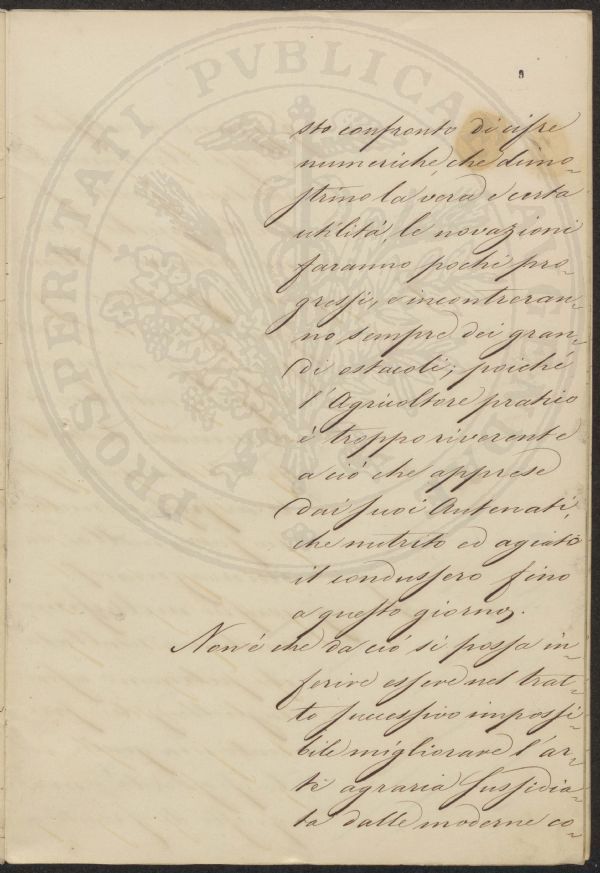 PROSPERITATI PVBLICAE AVGENDAE
sto confronto di cifre
numeriche, che dimo-
strino la vera e certa
utilità, le novazioni
faranno pochi pro-
gressi, e incontreran-
no sempre dei gran-
di ostacoli; poiché
l'Agricoltore pratico
è troppo riverente
a ciò che apprese
dai suoi Antenati,
che nutrito ed agiato
il condussero fino
a questo giorno.
Non è che da ciò si possa in-
ferire essere nel trat-
to successivo impossi-
bile migliorare l'ar-
te agraria sussidia-
ta dalle moderne co-